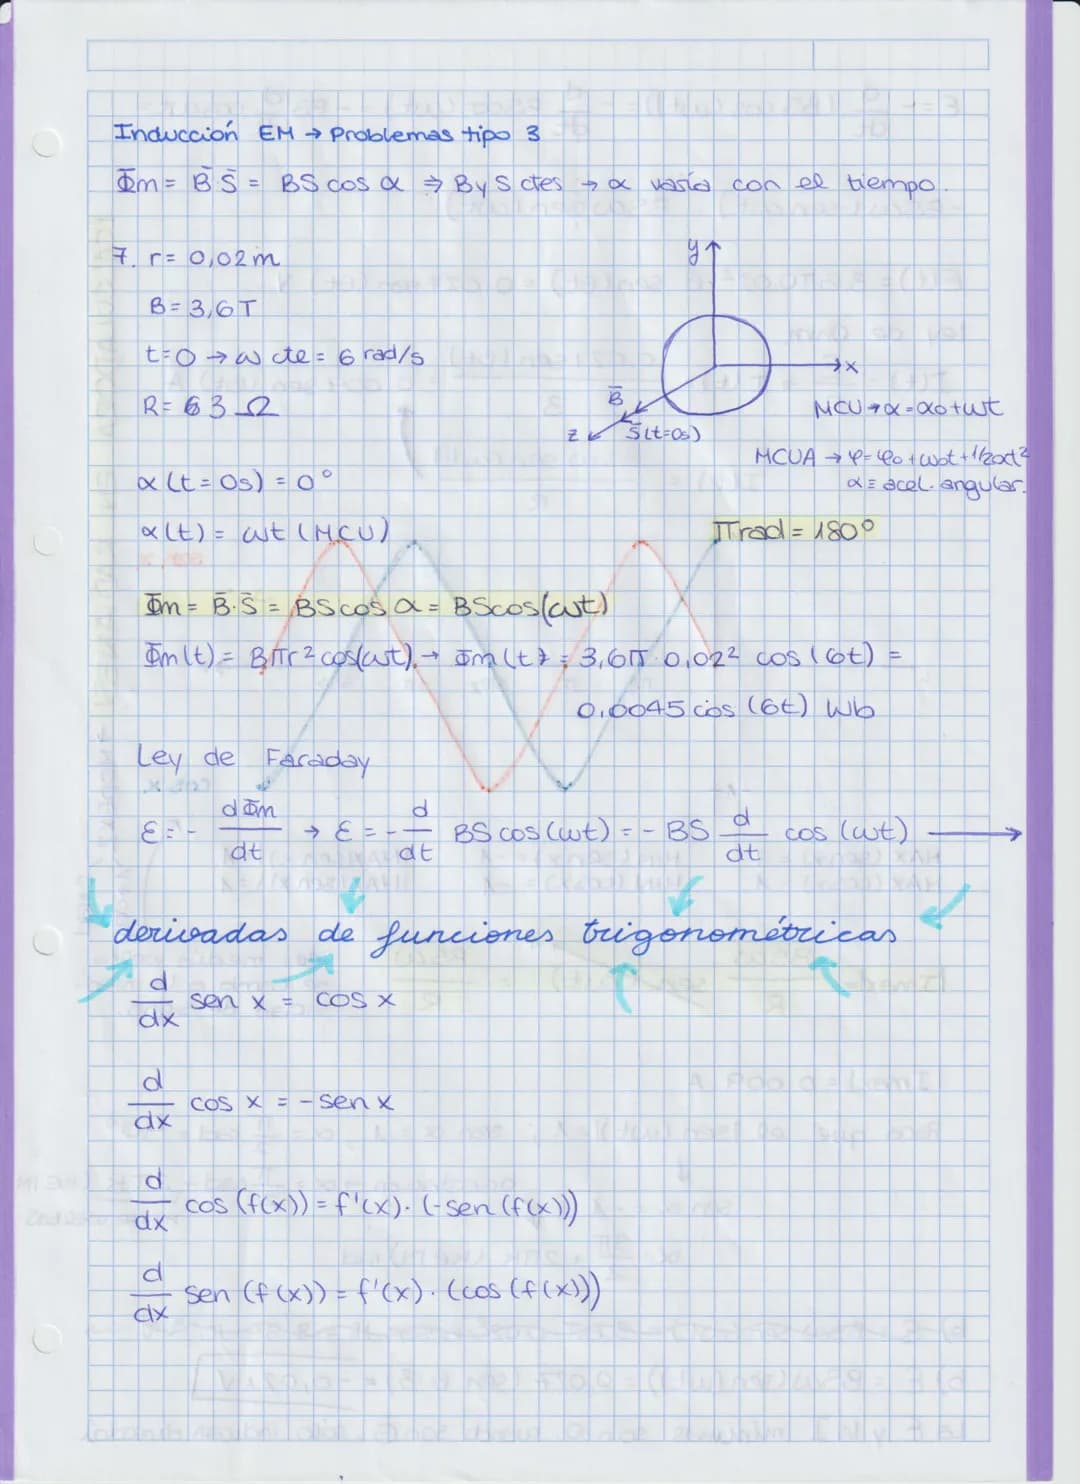 Inducción EM → Problemas tipo 3
Φm = B̄ S̄ = BS cos α ⇒ B y S ctes → α varía con el tiempo.
7. r = 0,02 m
B = 3,6 T
t=0 → ω cte = 6 rad/s
R = 63 Ω
α (t = 0s) = 0°
α(t) = ωt (MCU)
y
x
B̄
z
S̄(t=0s)
MCU → α = α0 + ωt
MCUA → φ = φ0 + ω0t + 1/2αt²
α ≡ acel. angular.
πrad = 180°
Φm = B̄·S̄ = BS cos α = BScos(ωt)
Φm(t) = Bπr² cos(ωt) → Φm(t) = 3,6π · 0,02² cos (6t) =
0,0045 cos (6t) Wb
Ley de Faraday
ε = - dΦm/dt → ε = - d/dt BS cos(ωt) = - BS d/dt cos (ωt) →
derivadas de funciones trigonométricas
d/dx sen x = cos x
d/dx cos x = - sen x
d/dx cos (f(x)) = f'(x) · (-sen (f(x)))
d/dx sen (f(x)) = f'(x) · (cos (f(x)))